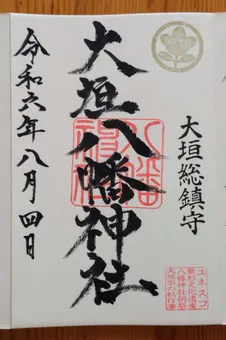 大垣総鎮守
大垣八幡神社
令和六年八月四日
ユネスコ
無形文化遺産
八幡神社例祭
大垣祭の軕行事